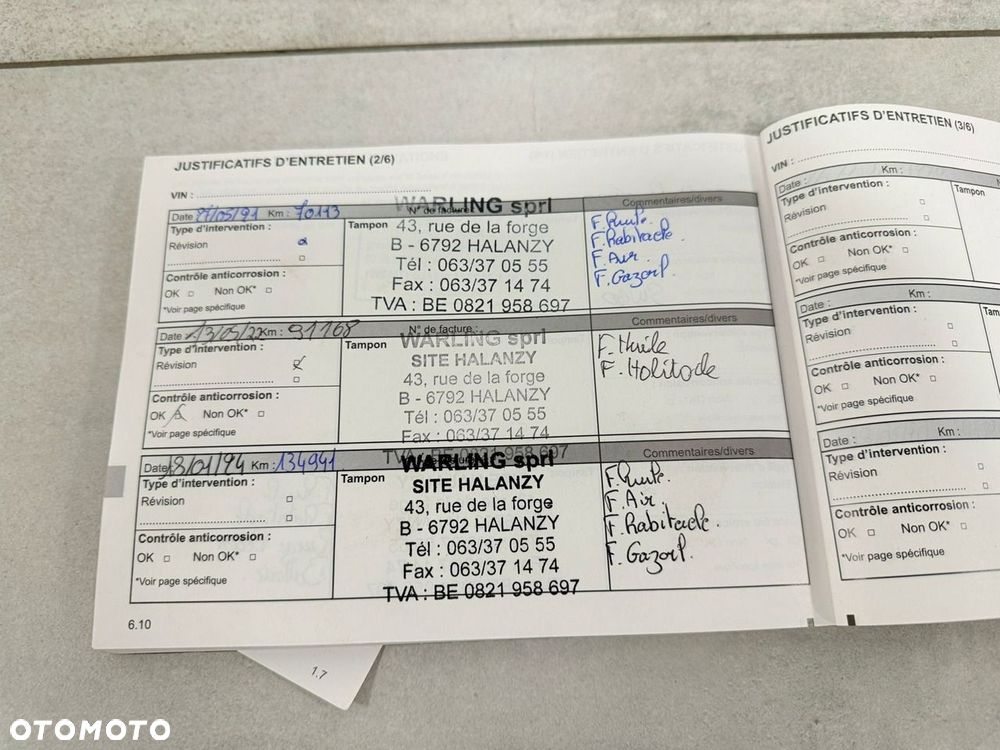 JUSTIFICATIFS D'ENTRETIEN (2/6)
VIN :
Date : /05/21 Km : 70113
N° de facture :
Commentaires/divers
Type d'intervention :
Révision
Contrôle anticorrosion :
OK Non OK*
*Voir page spécifique
Tampon
WARLING sprl
43, rue de la forge
B - 6792 HALANZY
Tél : 063/37 05 55
Fax : 063/37 14 74
TVA : BE 0821 958 697
F. Huile.
F. Habitacle.
F. Air.
F. Gazoil.
Date : 13/05/22 Km : 91168
N° de facture :
Commentaires/divers
Type d'intervention :
Révision
Contrôle anticorrosion :
OK Non OK*
*Voir page spécifique
Tampon
WARLING sprl
SITE HALANZY
43, rue de la forge
B - 6792 HALANZY
Tél : 063/37 05 55
Fax : 063/37 14 74
TVA : BE 0821 958 697
F. Huile
F.
Date : 18/01/24 Km : 134941
Commentaires/divers
Type d'intervention :
Révision
Contrôle anticorrosion :
OK Non OK*
*Voir page spécifique
Tampon
WARLING sprl
SITE HALANZY
43, rue de la forge
B - 6792 HALANZY
Tél : 063/37 05 55
Fax : 063/37 14 74
TVA : BE 0821 958 697
F. Huile.
F. Air.
F. Habitacle.
F. Gazoil.
6.10
1.7
JUSTIFICATIFS D'ENTRETIEN (3/6)
VIN :
Date : Km :
Type d'intervention :
Révision
Contrôle anticorrosion :
OK Non OK*
*Voir page spécifique
Tampon
Date : Km :
Type d'intervention :
Révision
Contrôle anticorrosion :
OK Non OK*
*Voir page spécifique
Date : Km :
Type d'intervention :
Révision
Contrôle anticorrosion :
OK Non OK*
*Voir page spécifique
OTOMOTO